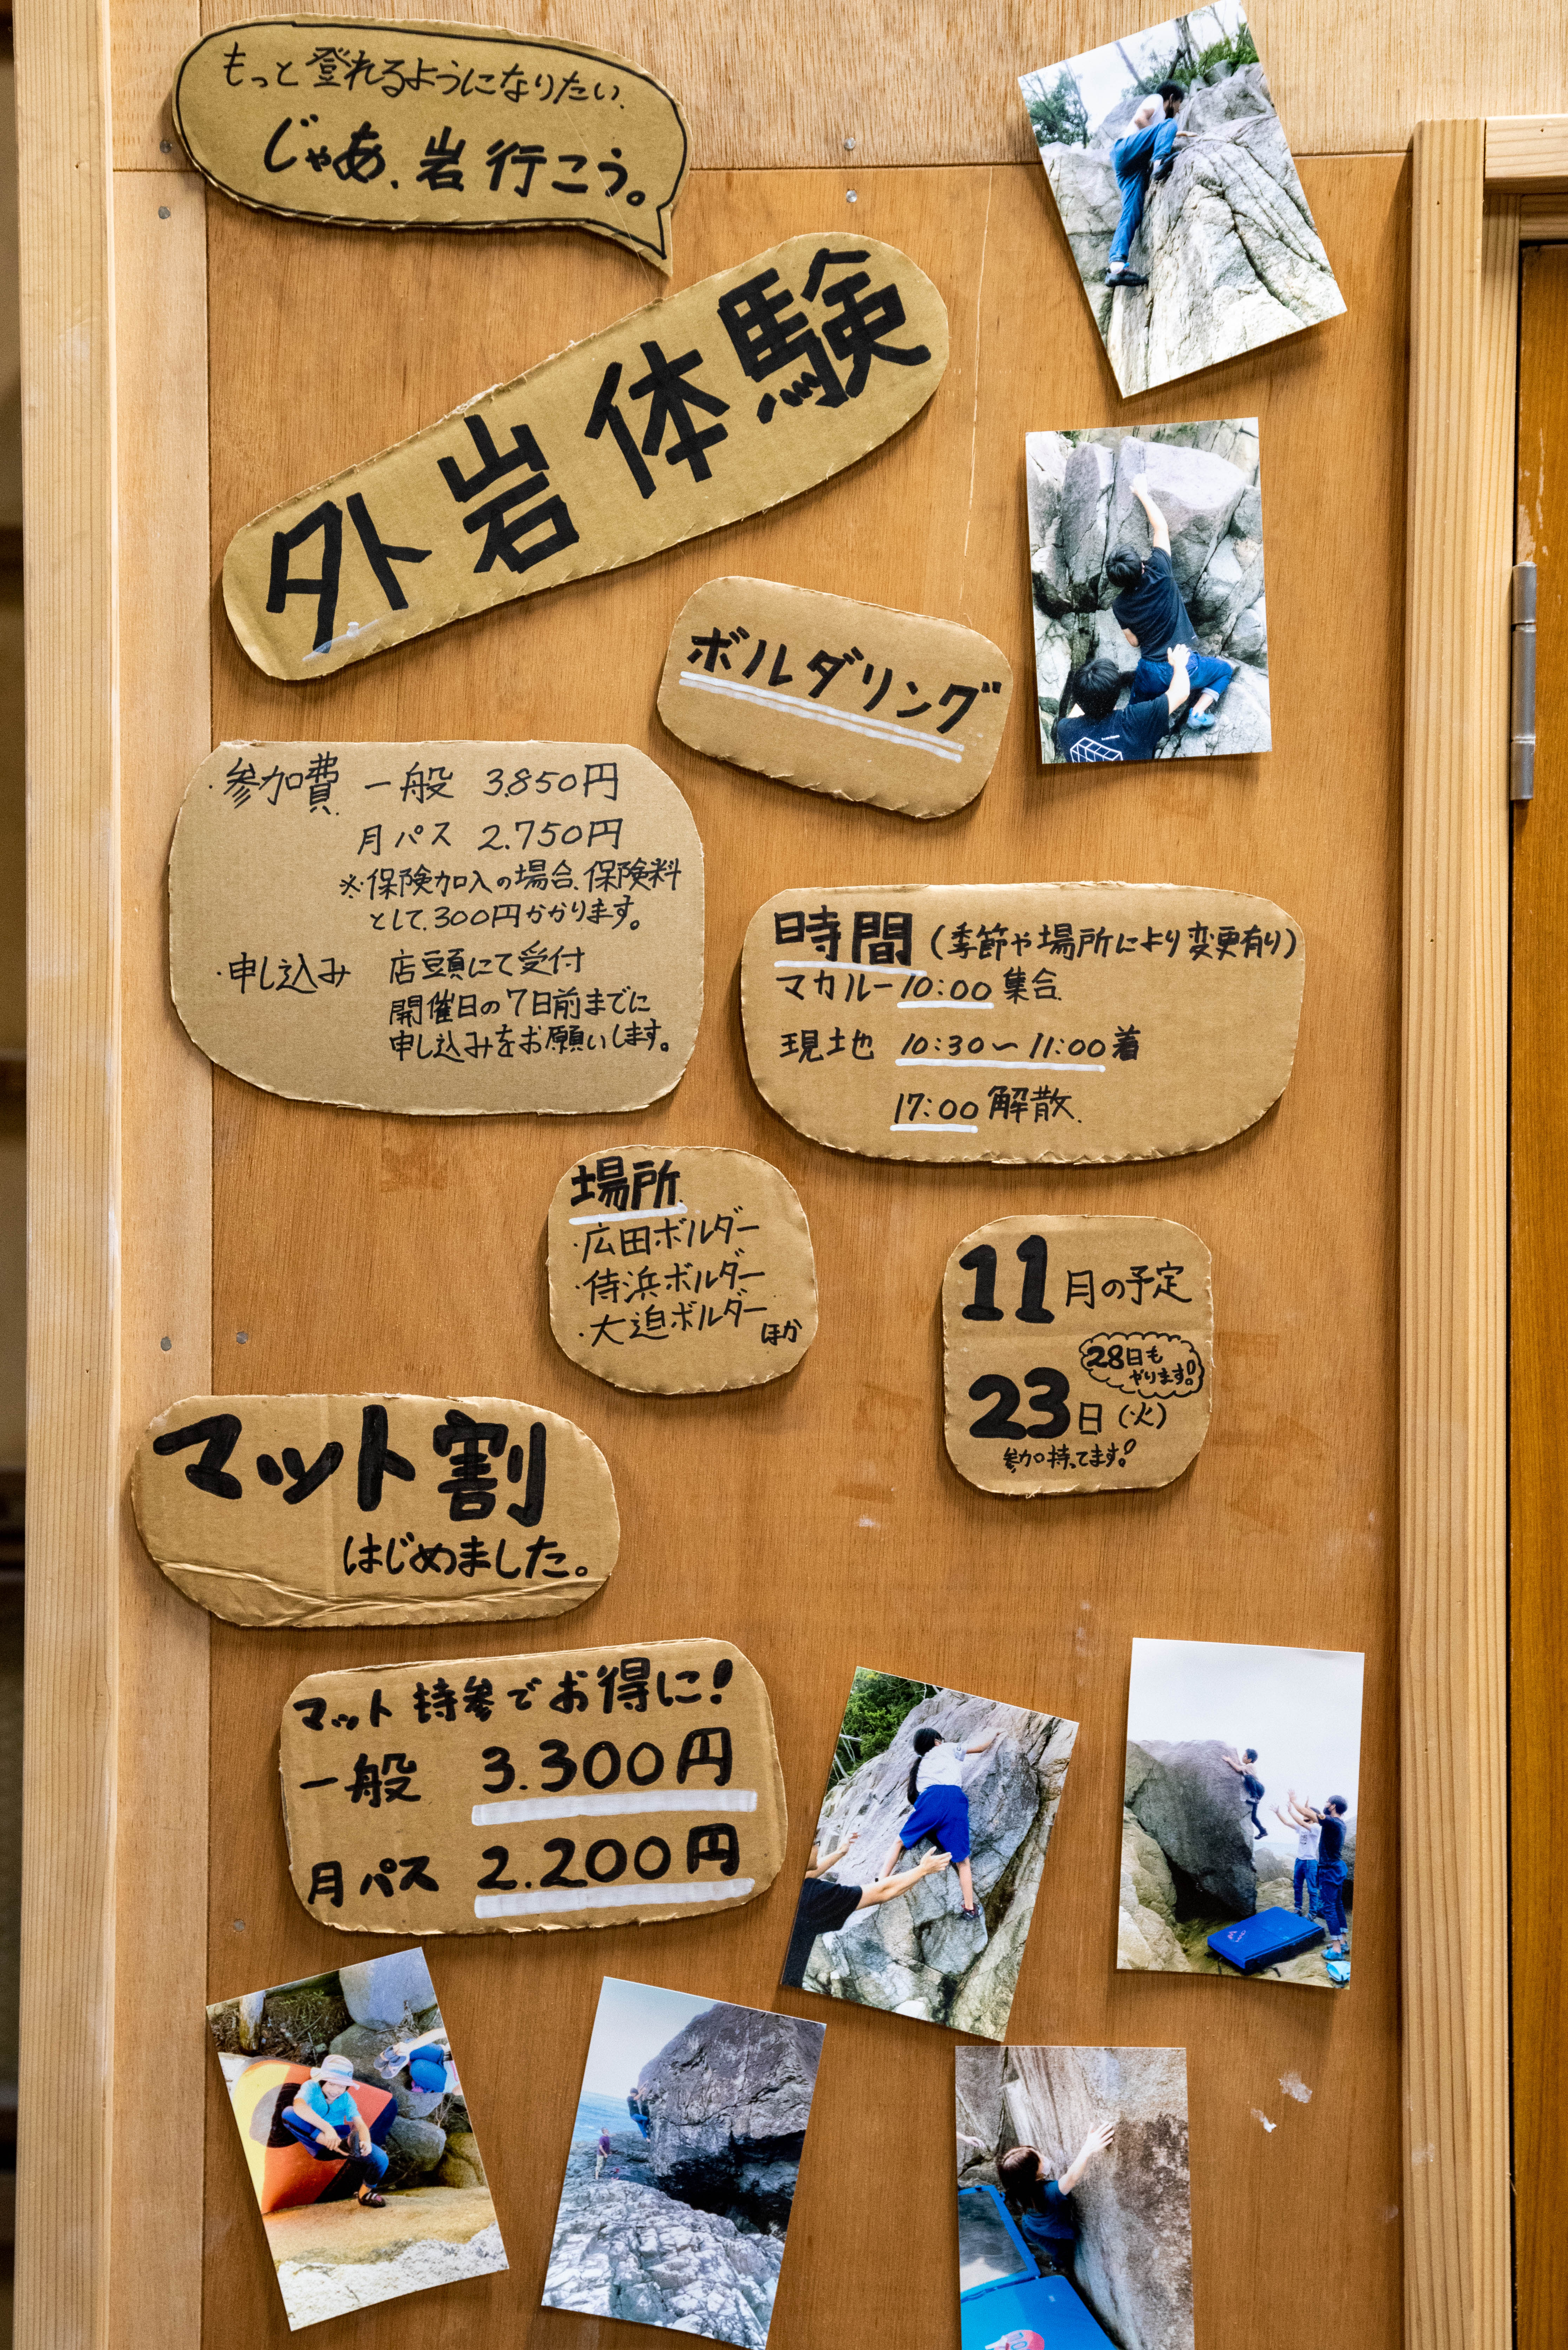 もっと登れるようになりたい.
じゃあ、岩行こう。
外岩体験
ボルダリング
・参加費 一般 3.850円
月パス 2.750円
※保険加入の場合、保険料
として、300円かかります。
・申し込み 店頭にて受付
開催日の7日前までに
申し込みをお願いします。
時間(季節や場所により変更有り)
マカルー10:00集合
現地 10:30〜11:00着
17:00解散
場所
・広田ボルダー
・侍浜ボルダー
・大迫ボルダー
ほか
11月の予定
28日も
やります!
23日(火)
参加待ってます!
マット割
はじめました。
マット持参でお得に!
一般 3.300円
月パス 2.200円